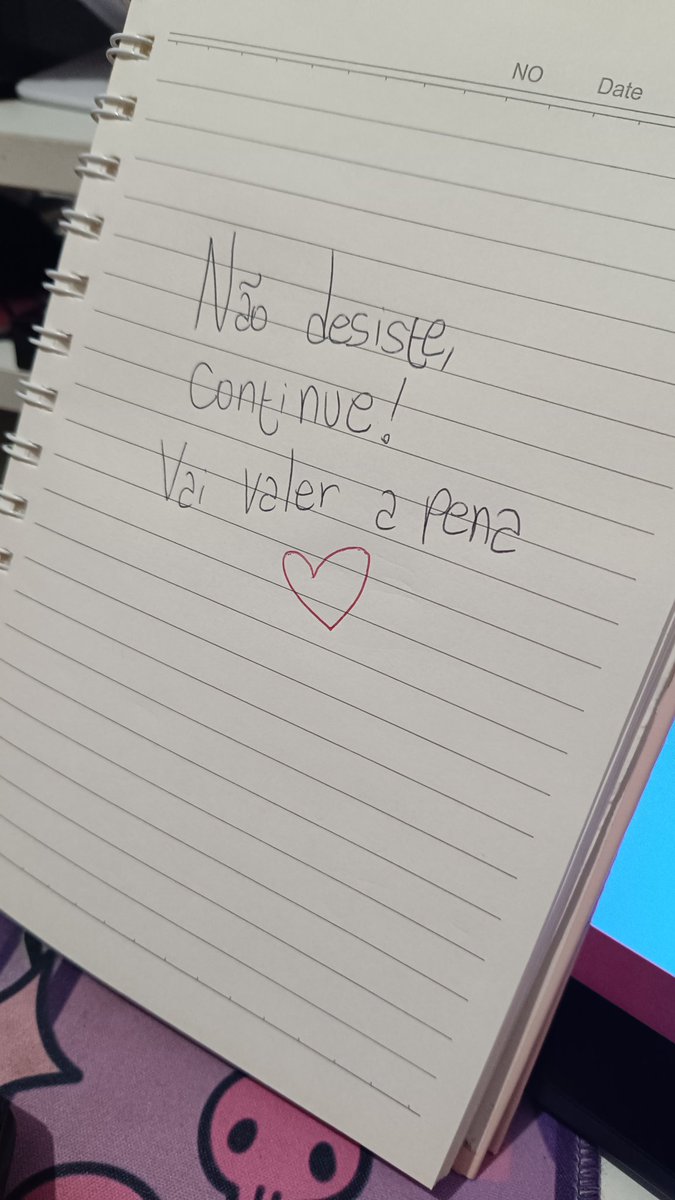 NO Date
Não desiste,
continue!
Vai valer a pena